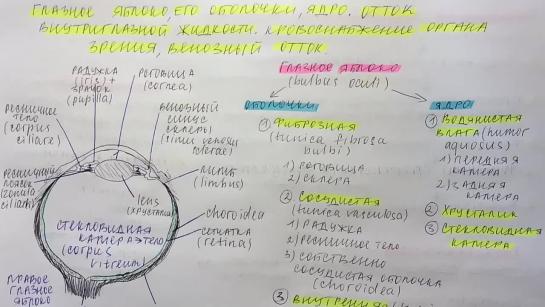 ГЛАЗНОЕ ЯБЛОКО, ЕГО ОБОЛОЧКИ, ЯДРО. ОТТОК
ВНУТРИГЛАЗНОЙ ЖИДКОСТИ. КРОВОСНАБЖЕНИЕ ОРГАНА
ЗРЕНИЯ, ВЕНОЗНЫЙ ОТТОК.
РАДУЖКА
(iris) +
ЗРАЧОК
(pupilla)
РОГОВИЦА
(cornea)
РЕСНИЧНОЕ
ТЕЛО
(corpus
ciliare)
ВЕНОЗНЫЙ
СИНУС
СКЛЕРЫ
(sinus venosus
sclerae)
РЕСНИЧНЫЙ
ПОЯСОК
(zonula
ciliaris)
ЛИМБ
(limbus)
1
lens
(хрусталик)
СТЕКЛОВИДНАЯ
КАМЕРА И ТЕЛО
(corpus
vitreum)
choroidea
СЕТЧАТКА
(retina)
ПРАВОЕ
ГЛАЗНОЕ
ЯБЛОКО
ГЛАЗНОЕ ЯБЛОКО
(bulbus oculi)
ОБОЛОЧКИ
① ФИБРОЗНАЯ
(tunica fibrosa
bulbi)
1) РОГОВИЦА
2) СКЛЕРА
② СОСУДИСТАЯ
(tunica vasculosa)
1) РАДУЖКА
2) РЕСНИЧНОЕ ТЕЛО
3) СОБСТВЕННО
СОСУДИСТАЯ ОБОЛОЧКА
(choroidea)
③ ВНУТРЕННЯЯ
ЯДРО
① ВОДЯНИСТАЯ
ВЛАГА (humor
aquosus)
1) ПЕРЕДНЯЯ
КАМЕРА
2) ЗАДНЯЯ
КАМЕРА
② ХРУСТАЛИК
③ СТЕКЛОВИДНАЯ
КАМЕРА